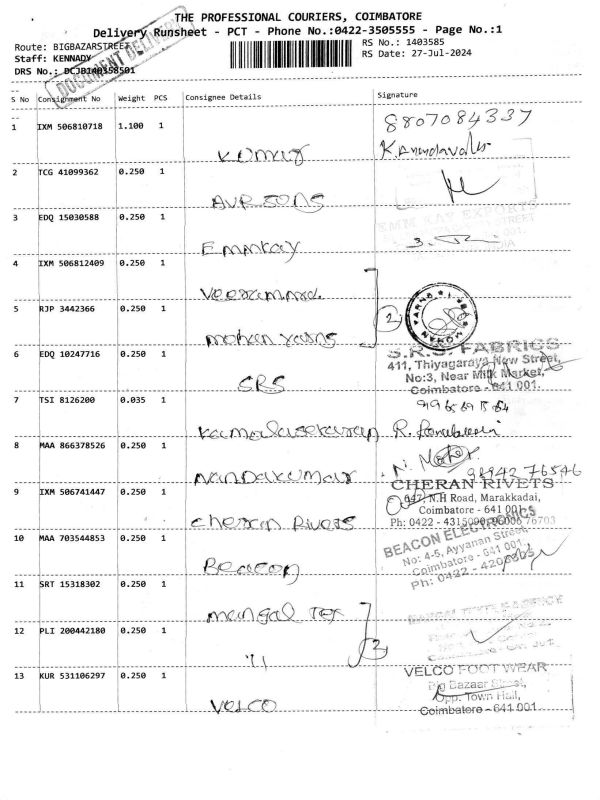 THE PROFESSIONAL COURIERS, COIMBATORE
Delivery Runsheet - PCT - Phone No.:0422-3505555 - Page No.:1
Route: BIGBAZARSTREET
RS No.: 1403585
Staff: KENNADY
RS Date: 27-Jul-2024
DRS No.: DCJB140358501
DOCUMENT DELIVERY
S No Consignment No Weight PCS Consignee Details Signature
8807084337
1 IXM 506810718 1.100 1
Kumar
2 TCG 41099362 0.250 1
AVR SONS
EMM KAY EXPORTS
3 EDQ 15030588 0.250 1
Emmkay
4 IXM 506812409 0.250 1
5 RJP 3442366 0.250 1
2
mohan yarns
S.R.S. FABRICS
6 EDQ 10247716 0.250 1
411, Thiyagaraya New Street,
No:3, Near Milk Market,
SRS
Coimbatore - 641 001.
7 TSI 8126200 0.035 1
Kamalasekaran
8 MAA 866378526 0.250 1
98942 76546
Nandakumar
CHERAN RIVETS
9 IXM 506741447 0.250 1
647, N.H Road, Marakkadai,
Coimbatore - 641 001.
Cheran Rivets
Ph: 0422 - 4315090, 96006 76703
10 MAA 703544853 0.250 1
BEACON ELECTRONICS
No: 4-5, Ayyanan Street,
Coimbatore - 641 001.
Beacon
11 SRT 15318302 0.250 1
mangal Tex
12 PLI 200442180 0.250 1
"
2
13 KUR 531106297 0.250 1
VELCO FOOT WEAR
Big Bazaar Street,
Opp. Town Hall,
Velco
Coimbatore - 641 001